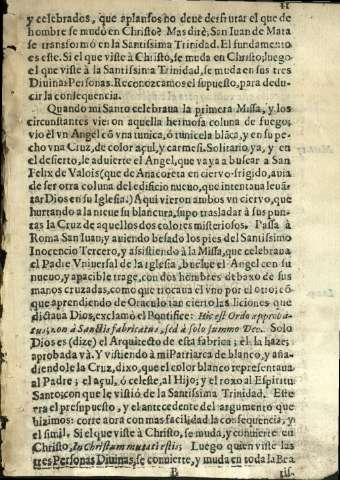 y celebrados, que aplausos no deue desfrutar el que de
hombre se mudò en Christo? Mas dirè, San Iuan de Mata
se transformò en la Santissima Trinidad. El fundamento
es este. Si el que viste à Christo, se muda en Christo; luego
el que viste à la Santissima Trinidad, se muda en sus tres
Diuinas Personas. Reconozcamos el supuesto, para dedu-
cir la consequencia.
Quando mi Santo celebraua la primera Missa, y los
circunstantes vieron aquella hermosa coluna de fuego;
vio èl vn Angel cõ vna tunica, ò tunicela blãca, y en su pe-
cho vna Cruz, de color açul, y carmesi. Solitario ya, y en
el desierto, le aduierte el Angel, que vaya a buscar a San
Felix de Valois (que de Anacoreta en cieruo frigido, auia
de ser otra coluna del edificio nueuo, que intentaua leuã-
tar Dios en su Iglesia.) Aqui vieron ambos vn cieruo, que
hurtando a la nieue su blancura, supo trasladar à sus pun-
tas la Cruz de aquellos dos colores misteriosos. Passa à
Roma San Iuan; y auiendo besado los pies del Santissimo
Inocencio Tercero, y assistiendo à la Missa, que celebraua
el Padre Vniuersal de la Iglesia, buelue el Angel con su
nueuo, y apacible trage, con dos hombres debaxo de sus
manos cruzadas, como que trocaua el vno por el otro; cõ
que aprendiendo de Oraculo tan cierto, las liciones que
dictaua Dios, exclamò el Pontifice: Hic est Ordo approba-
tus, non à Sanctis fabricatus, sed à solo summo Deo. Solo
Dios es (dize) el Arquitecto de esta fabrica; èl la haze;
aprobada và. Y vistiendo à mi Patriarca de blanco, y aña-
diendole la Cruz, dixo, que el color blanco representaua
al Padre; el açul, ò celeste, al Hijo; y el roxo al Espiritu
Santo; con que le vistiò de la Santissima Trinidad. Este
era el presupuesto, y el antecedente del argumento que
hizimos: corre aora con mas facilidad la consequencia, y
el simil. Si el que viste à Christo, se muda, y conuierte en
Christo, In Christum mutati estis; Luego quien viste las
tres Personas Diuinas, se conuierte, y muda en toda la Bea
B
tis-